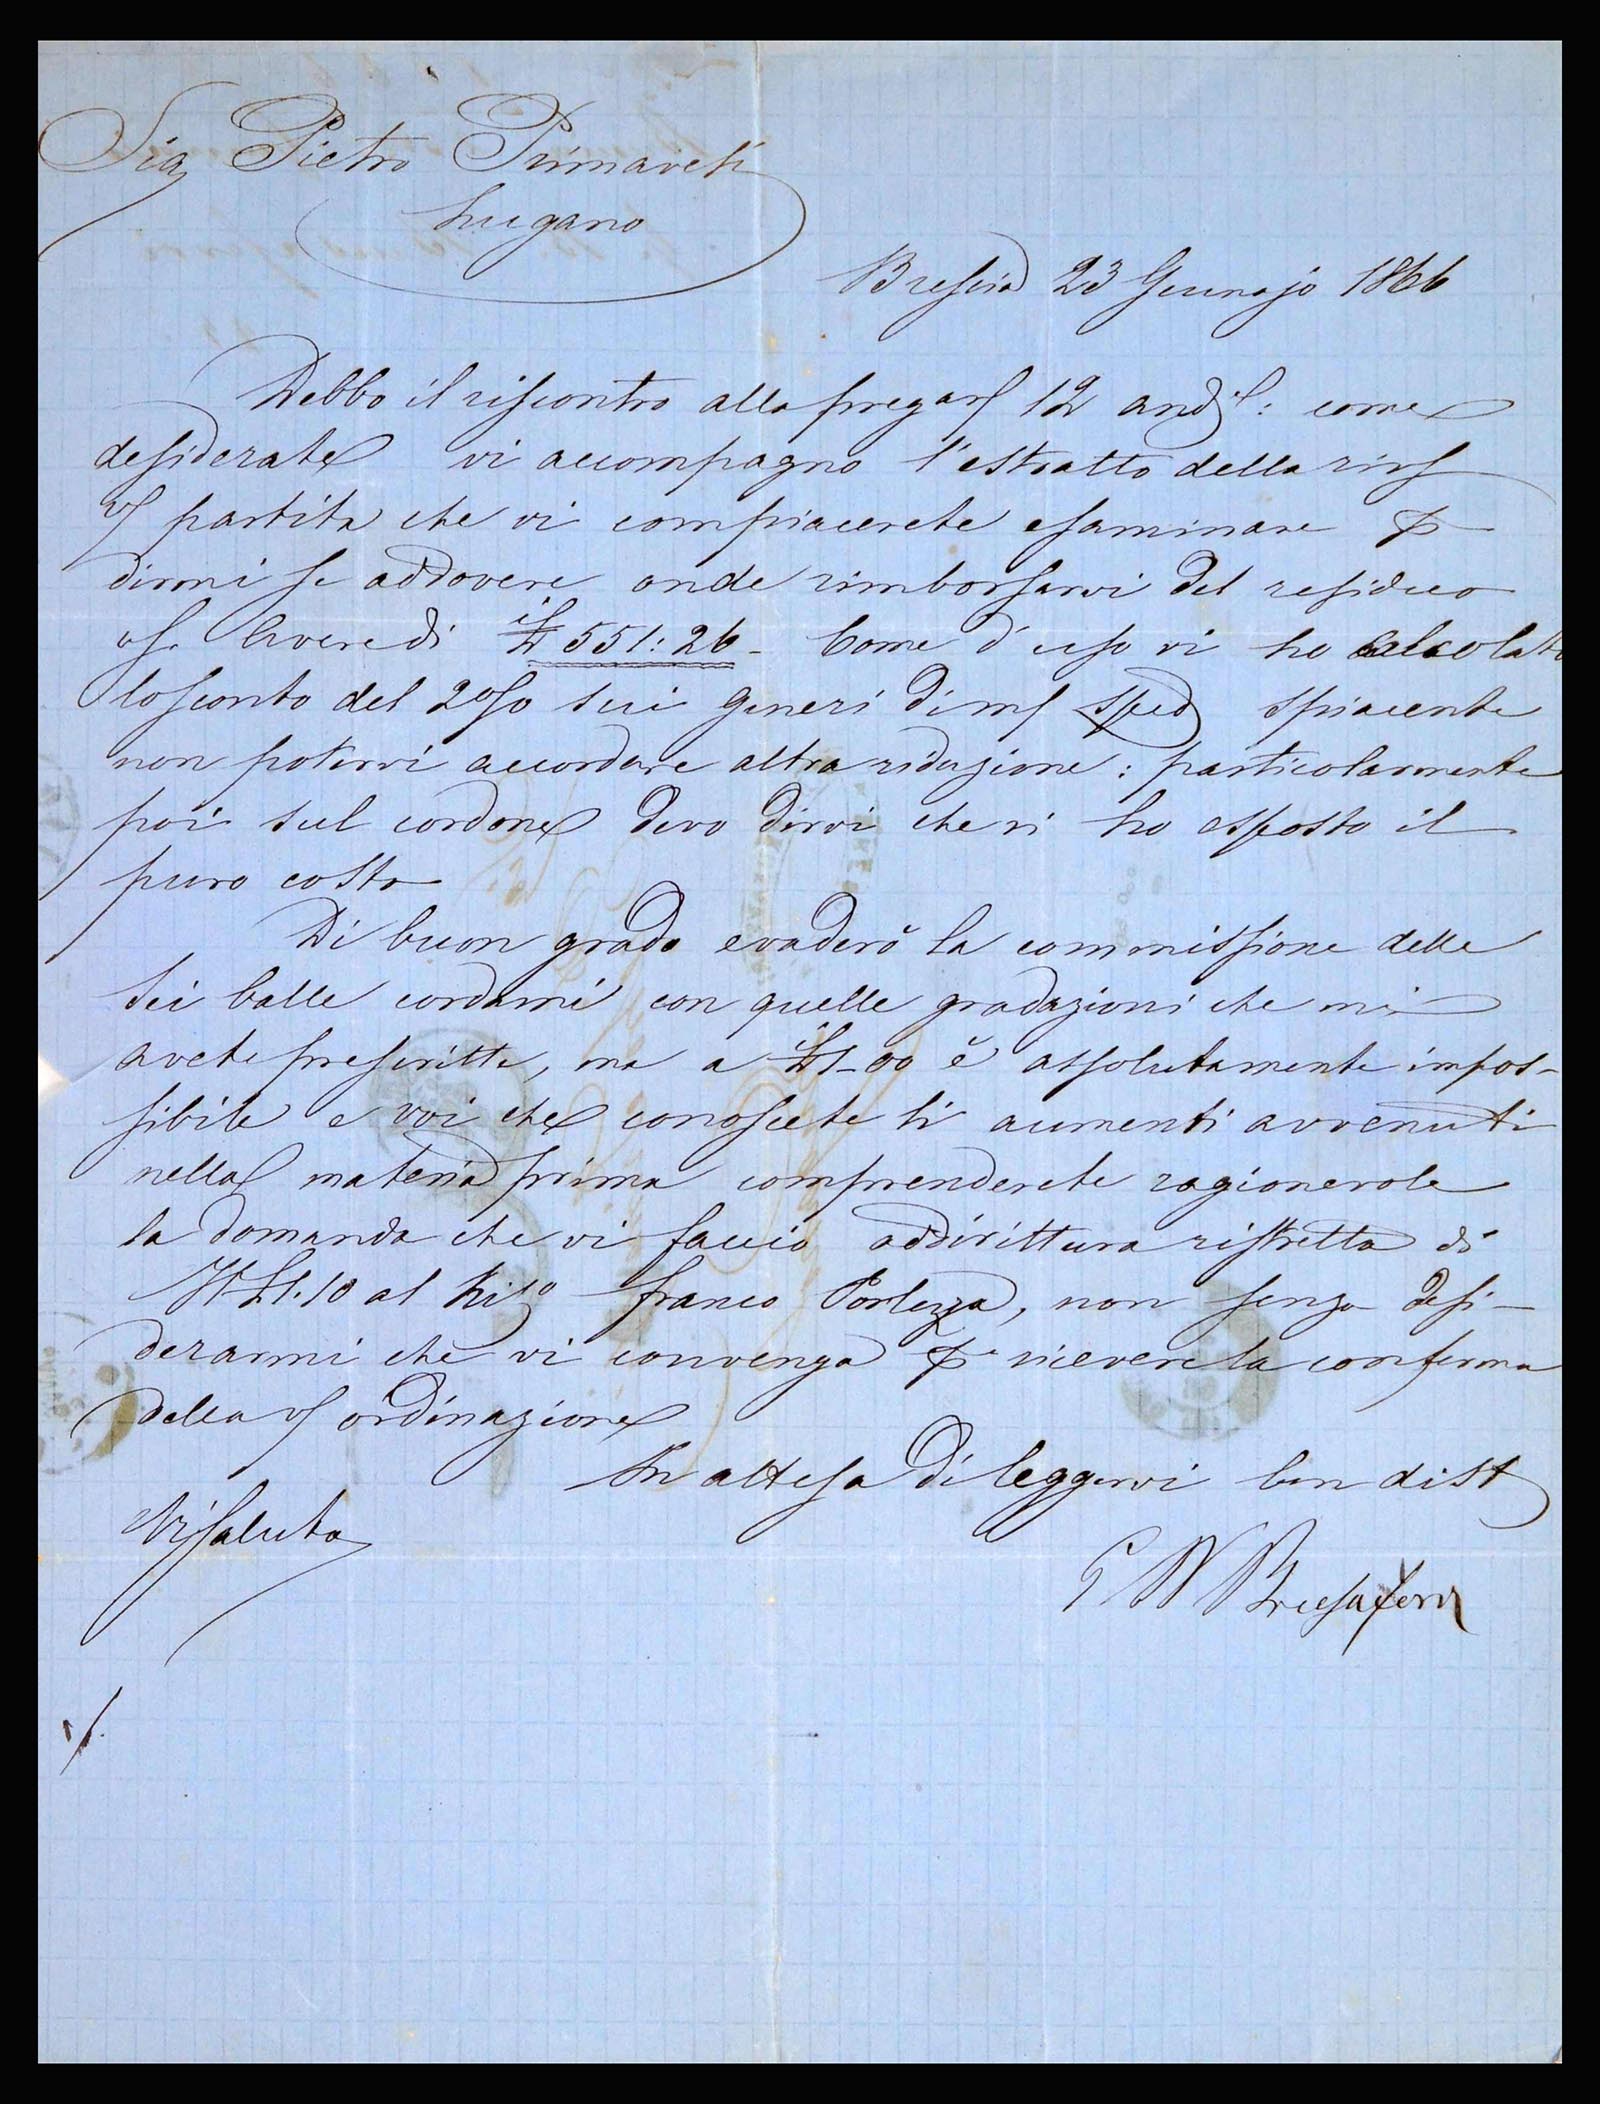 Sig Pietro Primavesi
Lugano
Brescia 23 Gennajo 1866
Debbo il riscontro alla preg vs 12 and: come
desiderate vi accompagno l'estratto della
vs partita che vi compiacerete esaminare &
dirmi se addovere onde rimborsarvi del residuo
vs. Avere di it£ 551:26 - Come d'uso vi ho calcolato
lo sconto del 2% sui generi di ms sped spiacente
non potervi accordare altra riduzione: particolarmente
poi sul cordone devo dirvi che vi ho esposto il
puro costo
Di buon grado evaderò la commissione delle
sei balle cordami con quelle gradazioni che mi
avete prescritte, ma a it£1-00 è assolutamente impos-
sibile e voi che conoscete li aumenti avvenuti
nella materia prima comprenderete ragionevole
la domanda che vi faccio addirittura ristretta di
It£1.10 al Kilo franco Porlezza, non senza desi-
derarmi che vi convenga & ricevere la conferma
della vs ordinazione
In attesa di leggervi ben dist
Vi saluto